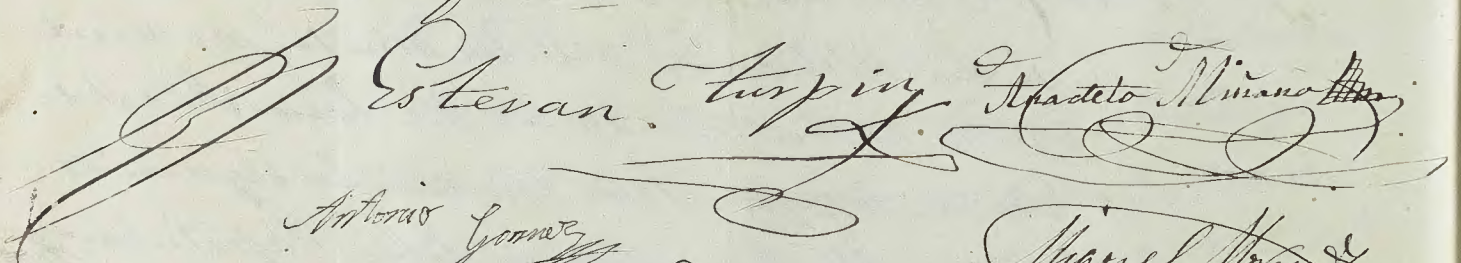 Estevan Turpin Anacleto Miñano
Antonio Gomez Miguel